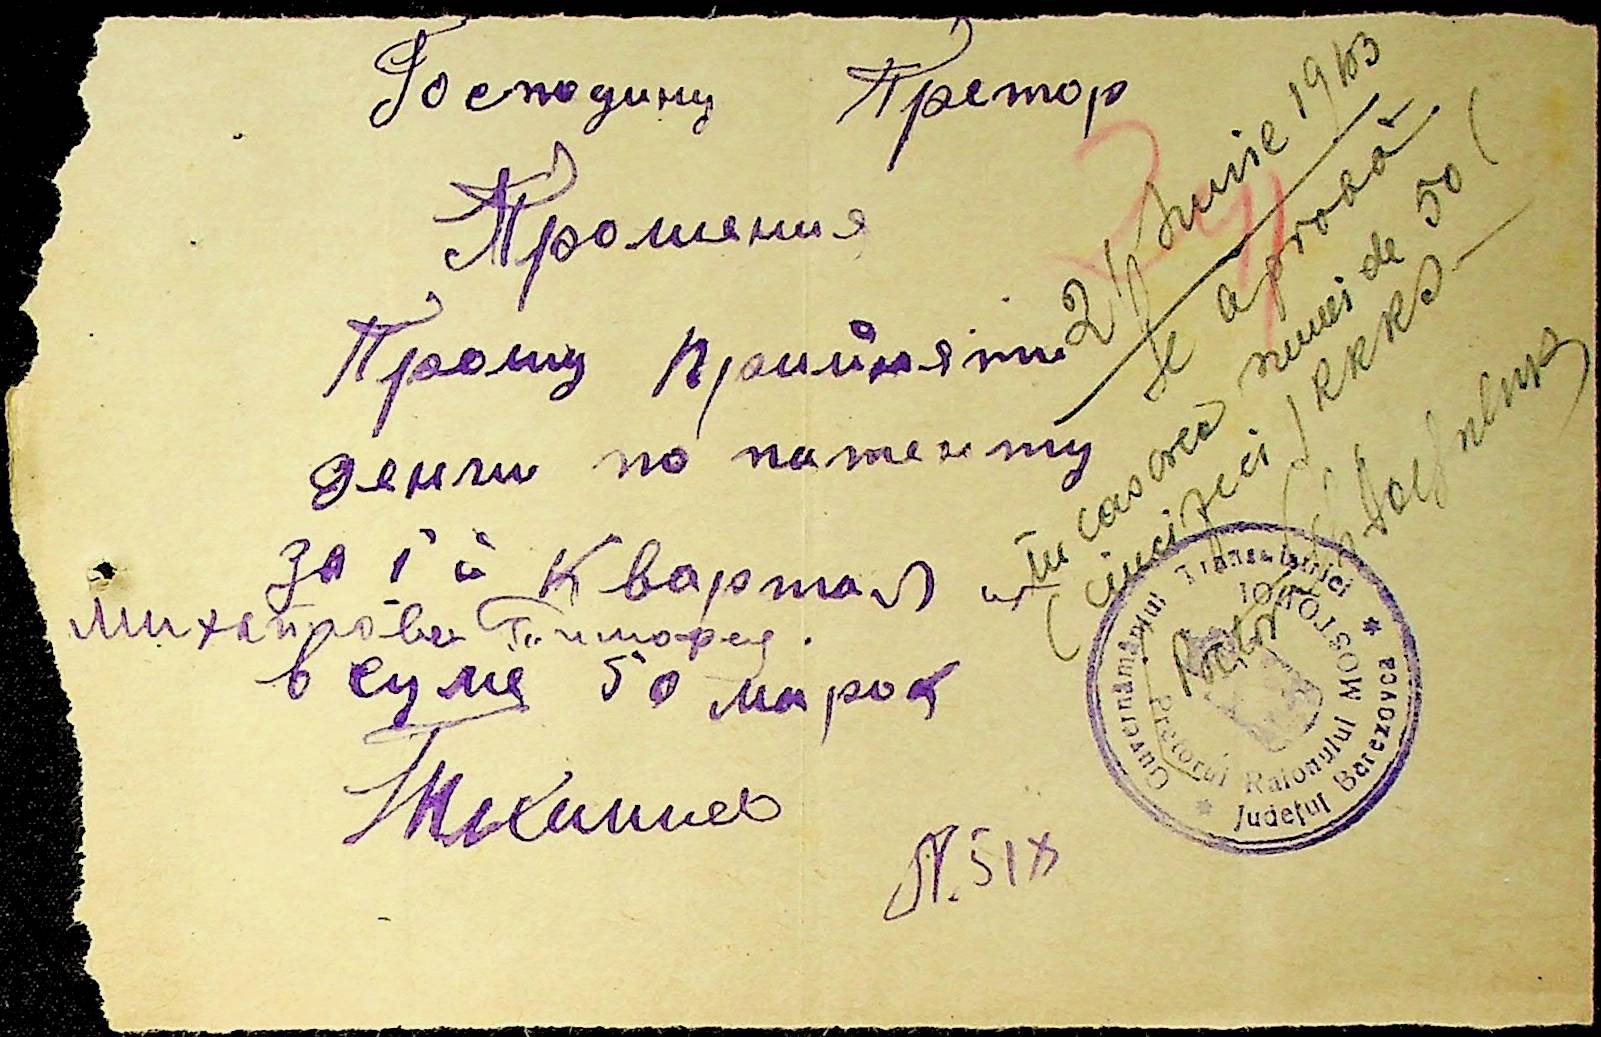 Господину Претор
Прошения
Прошу прийняти
денги по патенту
за 1й Квартал от
Михайлова Тимофея.
в суме 50 марок
21 Iunie 1943
Se aprobă
în casarea sumei de 50 (
cincizeci) RKKS
Pretor
Guvernământul Transnistriei
Județul Berezovca
Pretorul Raionului MOSTOVOI
N. 51